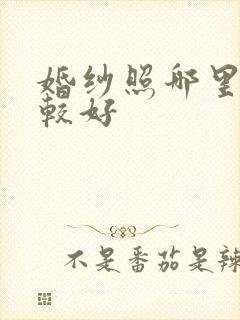 婚纱照哪里
较好
不是番茄是辣